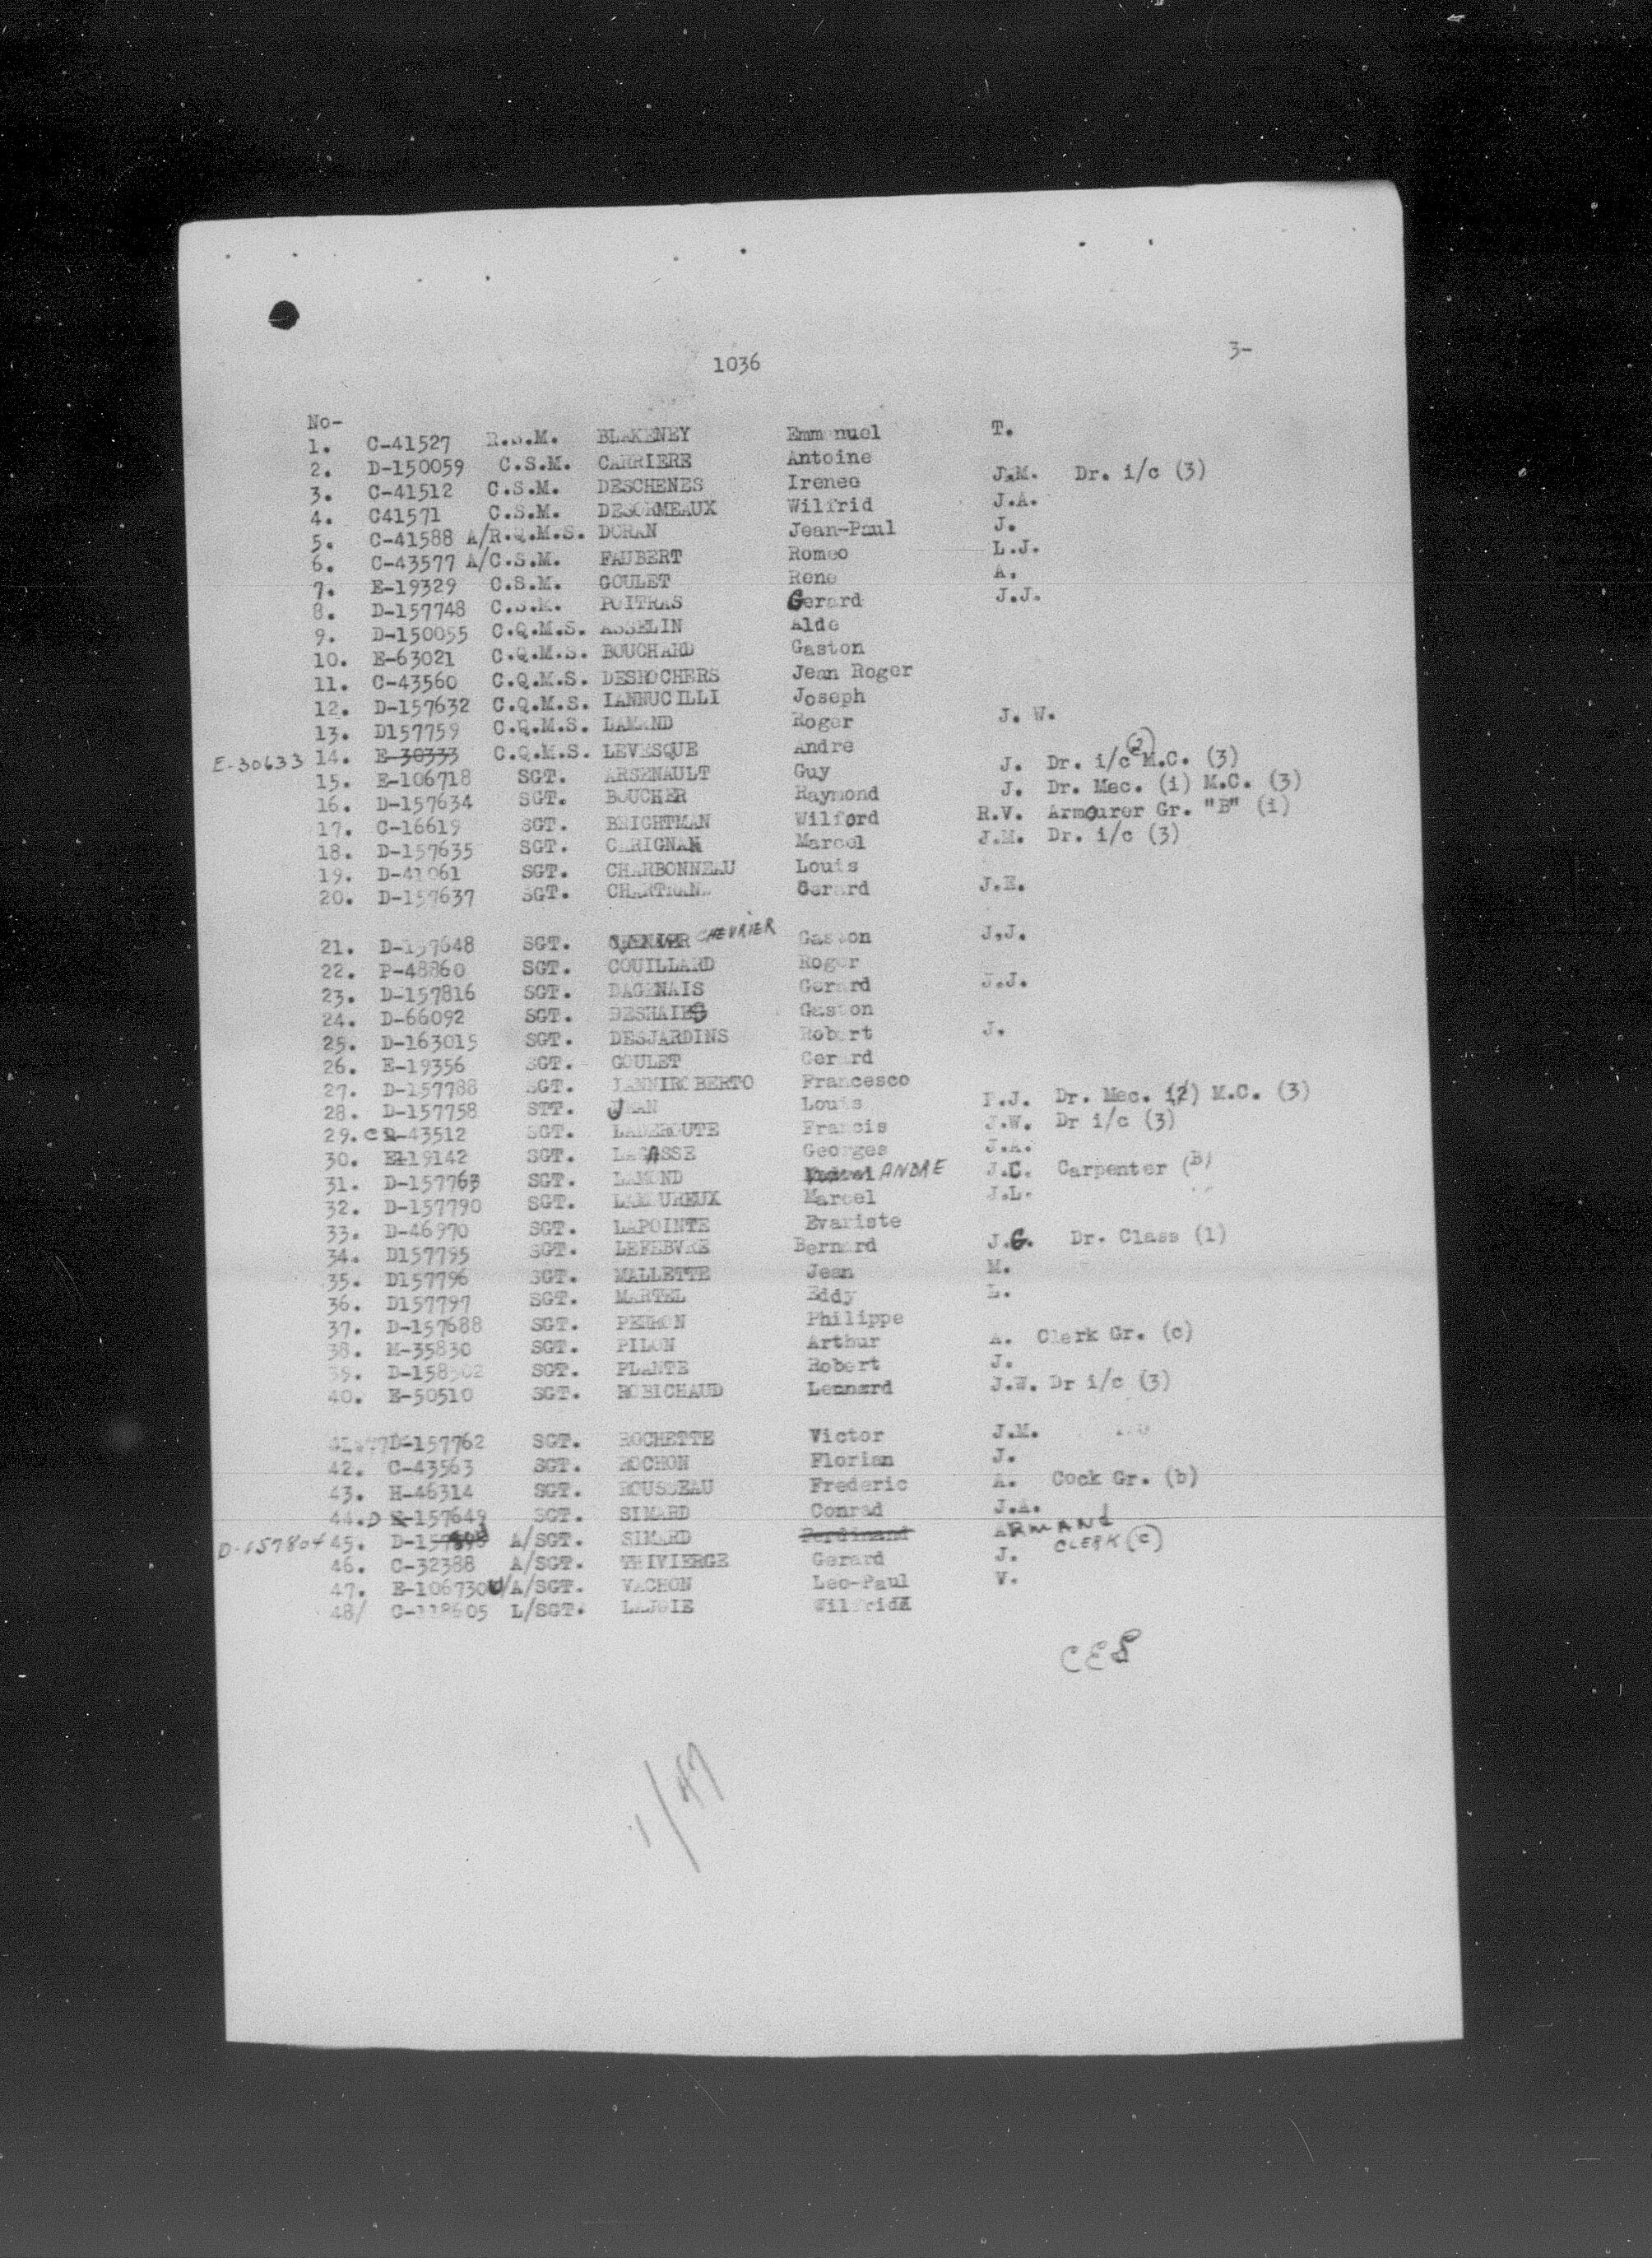 3-
1036
No-
1. C-41527 R.S.M. BLAKENEY Emmanuel T.
2. D-150059 C.S.M. CARRIERE Antoine
3. C-41512 C.S.M. DESCHENES Irenee J.M. Dr. i/c (3)
4. C41571 C.S.M. DESORMEAUX Wilfrid J.A.
5. C-41588 A/R.Q.M.S. DORAN Jean-Paul J.
6. C-43577 A/C.S.M. FAUBERT Romeo L.J.
7. E-19329 C.S.M. GOULET Rene A.
8. D-157748 C.S.M. POITRAS Gerard J.J.
9. D-150055 C.Q.M.S. ASSELIN Aldo
10. E-63021 C.Q.M.S. BOUCHARD Gaston
11. C-43560 C.Q.M.S. DESROCHERS Jean Roger
12. D-157632 C.Q.M.S. IANNUCILLI Joseph
13. D157759 C.Q.M.S. LAMAND Roger J. W.
E-30633 14. E-30333 C.Q.M.S. LEVESQUE Andre
15. E-106718 SGT. ARSENAULT Guy J. Dr. i/c (2) M.C. (3)
16. D-157634 SGT. BOUCHER Raymond J. Dr. Mec. (i) M.C. (3)
17. C-16619 SGT. BRIGHTMAN Wilford R.V. Armourer Gr. "B" (i)
18. D-157635 SGT. CARIGNAN Marcel J.M. Dr. i/c (3)
19. D-41061 SGT. CHARBONNEAU Louis
20. D-157637 SGT. CHARTRAND Gerard J.E.
21. D-157648 SGT. CHEVRIER Gaston J.J.
22. P-48860 SGT. COUILLARD Roger
23. D-157816 SGT. DAGENAIS Gerard J.J.
24. D-66092 SGT. DESHAIES Gaston
25. D-163015 SGT. DESJARDINS Robert J.
26. E-19356 SGT. GOULET Gerard
27. D-157788 SGT. JANNIROBERTO Francesco
28. D-157758 STT. JEAN Louis P.J. Dr. Mec. (2) M.C. (3)
29. C -43512 SGT. LADEROUTE Francis J.W. Dr i/c (3)
30. E-19142 SGT. LAGASSE Georges J.A.
31. D-157763 SGT. LAMOND ANDRE J.C. Carpenter (B)
32. D-157790 SGT. LAMOUREUX Marcel J.L.
33. D-46970 SGT. LAPOINTE Evariste
34. D157795 SGT. LEFEBVRE Bernard J.G. Dr. Class (1)
35. D157796 SGT. MALLETTE Jean M.
36. D157797 SGT. MARTEL Eddy L.
37. D-157688 SGT. PERRON Philippe
38. M-35830 SGT. PILON Arthur A. Clerk Gr. (c)
39. SGT. PLANTE Robert J.
40. E-50510 SGT. ROBICHAUD Lennard J.W. Dr i/c (3)
D-157762 SGT. ROCHETTE Victor J.M.
42. C-43563 SGT. ROCHON Florian J.
43. H-46314 SGT. ROUSSEAU Frederic A. Cock Gr. (b)
44. D -157649 SGT. SIMARD Conrad J.A.
D-157804 45. A/SGT. SIMARD Ferdinand ARMAND
46. C-32388 A/SGT. THIVIERGE Gerard J. CLERK (C)
47. E-106730 A/SGT. VACHON Leo-Paul V.
48/ C-118605 L/SGT. LAJOIE Wilfrid